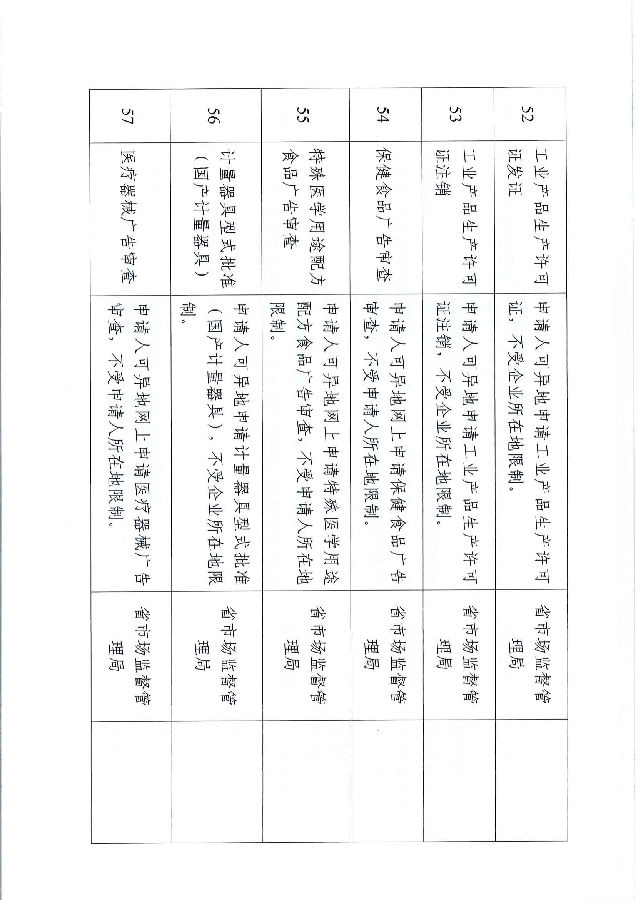 52
工业产品生产许可
证发证
申请人可异地申请工业产品生产许可
证，不受企业所在地限制。
省市场监督管
理局
53
工业产品生产许可
证注销
申请人可异地申请工业产品生产许可
证注销，不受企业所在地限制。
省市场监督管
理局
54
保健食品广告审查
申请人可异地网上申请保健食品广告
审查，不受申请人所在地限制。
省市场监督管
理局
55
特殊医学用途配方
食品广告审查
申请人可异地网上申请特殊医学用途
配方食品广告审查，不受申请人所在地
限制。
省市场监督管
理局
56
计量器具型式批准
（国产计量器具）
申请人可异地申请计量器具型式批准
（国产计量器具），不受企业所在地限
制。
省市场监督管
理局
57
医疗器械广告审查
申请人可异地网上申请医疗器械广告
审查，不受申请人所在地限制。
省市场监督管
理局